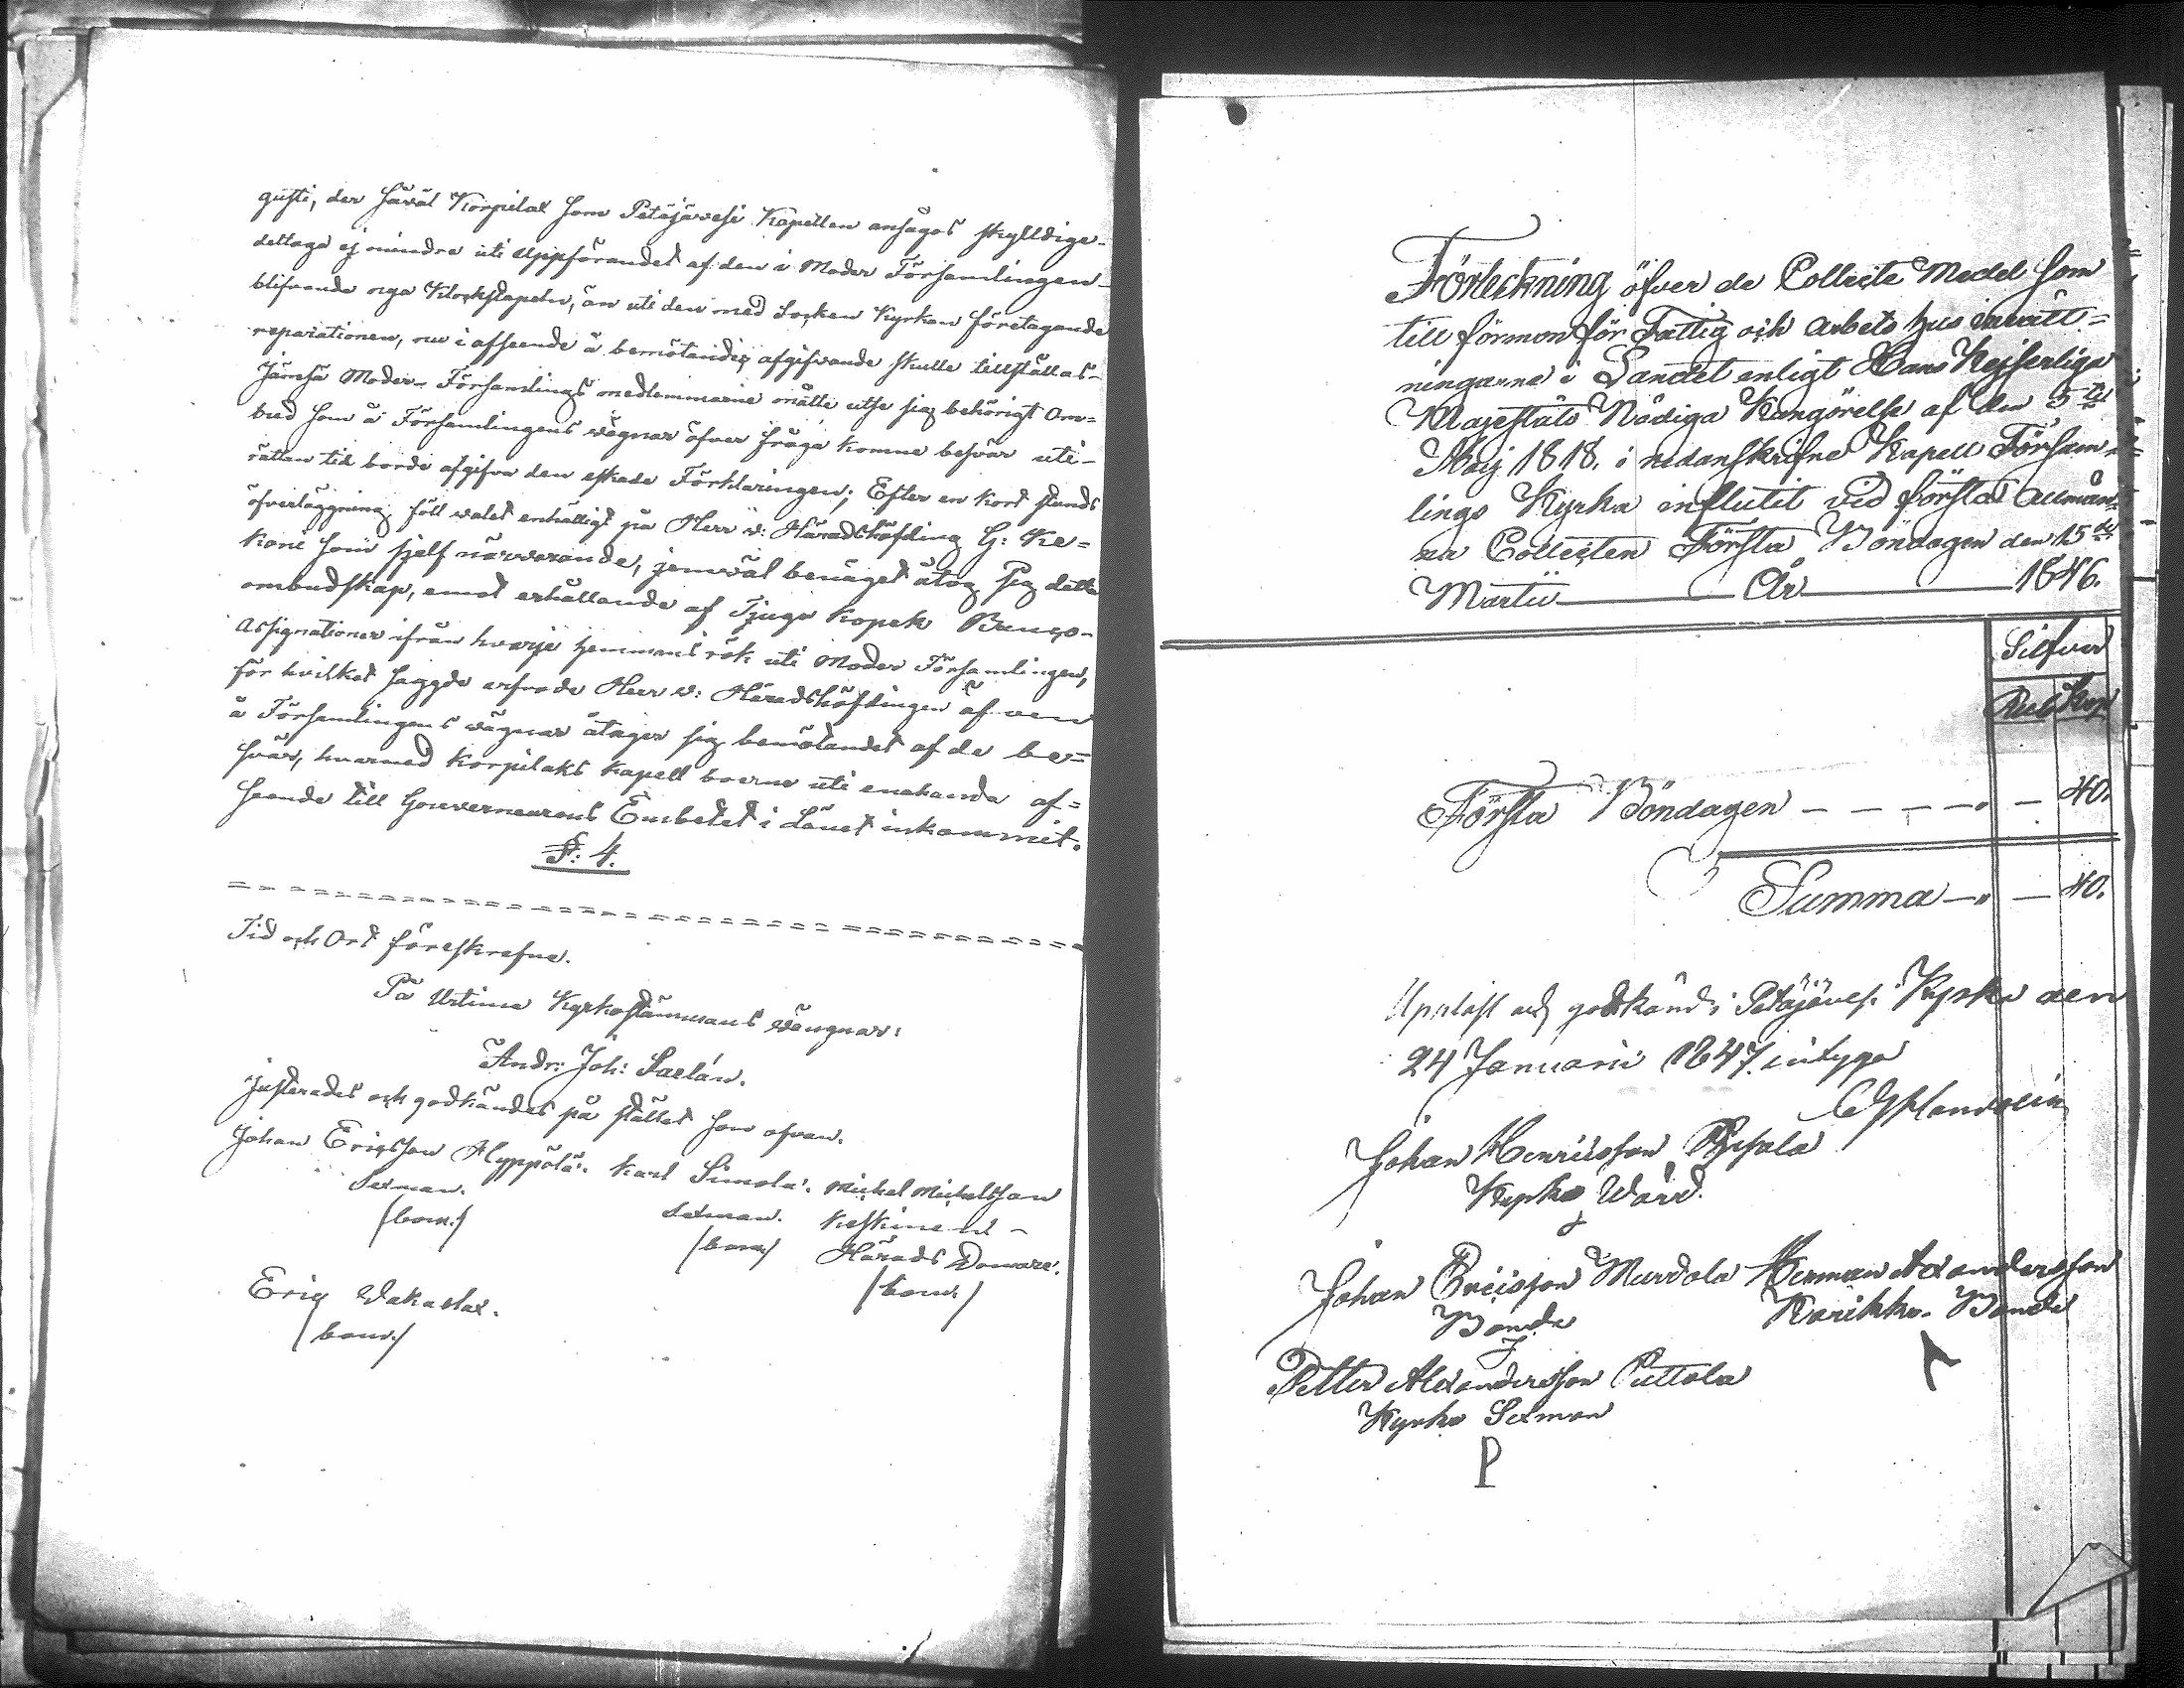 gusti, der såväl Korpilax som Petäjävesi Kapellen ansågos skylldige
dettaga ej mindre uti Uppförandet af den i Moder Församlingen
blifvande nya Klockstapeln, än uti den med Socken Kyrkan företagande
reparationen, nu i afseende å bemötandes afgifvande skulle tillställas
Jämsä Moder-Församlings medlemmarne måtte utse sig behörigt Om=
bud som å Församlingens vägnar öfver fråga komne besvär uti
rättan tid borde afgifva den äskade Förklaringen; Efter en kort stunds
öfverläggning föll valet enhälligt på Herr v: Häradshöfding G:
som sjelf närvarande, jemväl benäget åtog sig detta
ombudskap, emot erhållande af Tjugo kopek Banco-
Assignationer ifrån hvarje hemmans rök uti Moder Församlingen,
för hvilket sagde arfvode Herr v: Häradshöfdingen äfven
å Församlingens vägnar åtager sig bemötandet af de be=
svär, hvarmed Korpilaks kapell boerne uti enahanda af=
seende till Gouverneurens Embetet i Länet inkommit.
§: 4.
Tid och Ort föreskrefne.
På Urtima Kyrkostämmans vängnar:
Andr: Joh: Saelán.
Justerades och godkändes på stället som ofvan.
Johan Ericsson Hyppölä. Karl Simola. Michel Michelsson
Sexman. Sexman. Keskinen
/bom./ /bom./ Härads Domare.
Eric Vakaslax. /bom./
/bom./
Förteckning öfver de Collecte Medel som
till förmon för Fattig och Arbets hus inrätt=
ningarne i Landet enligt Hans Kejserliga
Majestäts Nådiga Kungörelse af den 5te
Maij 1818. i nedanskrifne Kapell Försam=
lings Kyrka influtit vid första allmän=
na Collecten Första Böndagen den 15de
Martii År 1846.
Silfver
Rub Kop
Första Böndagen - - - - " - 40.
Summa - " - 40.
Uppläst och godkänd i Petäjävesi Kyrka den
24 Januarii 1847. intyga
Johan Henricsson
Kyrko Värd.
Johan Ericsson Murdola Herman Alexandersson
Bonde Karikko. Bonde
Petter Alexandersson Puttola
Kyrko Sexman
P